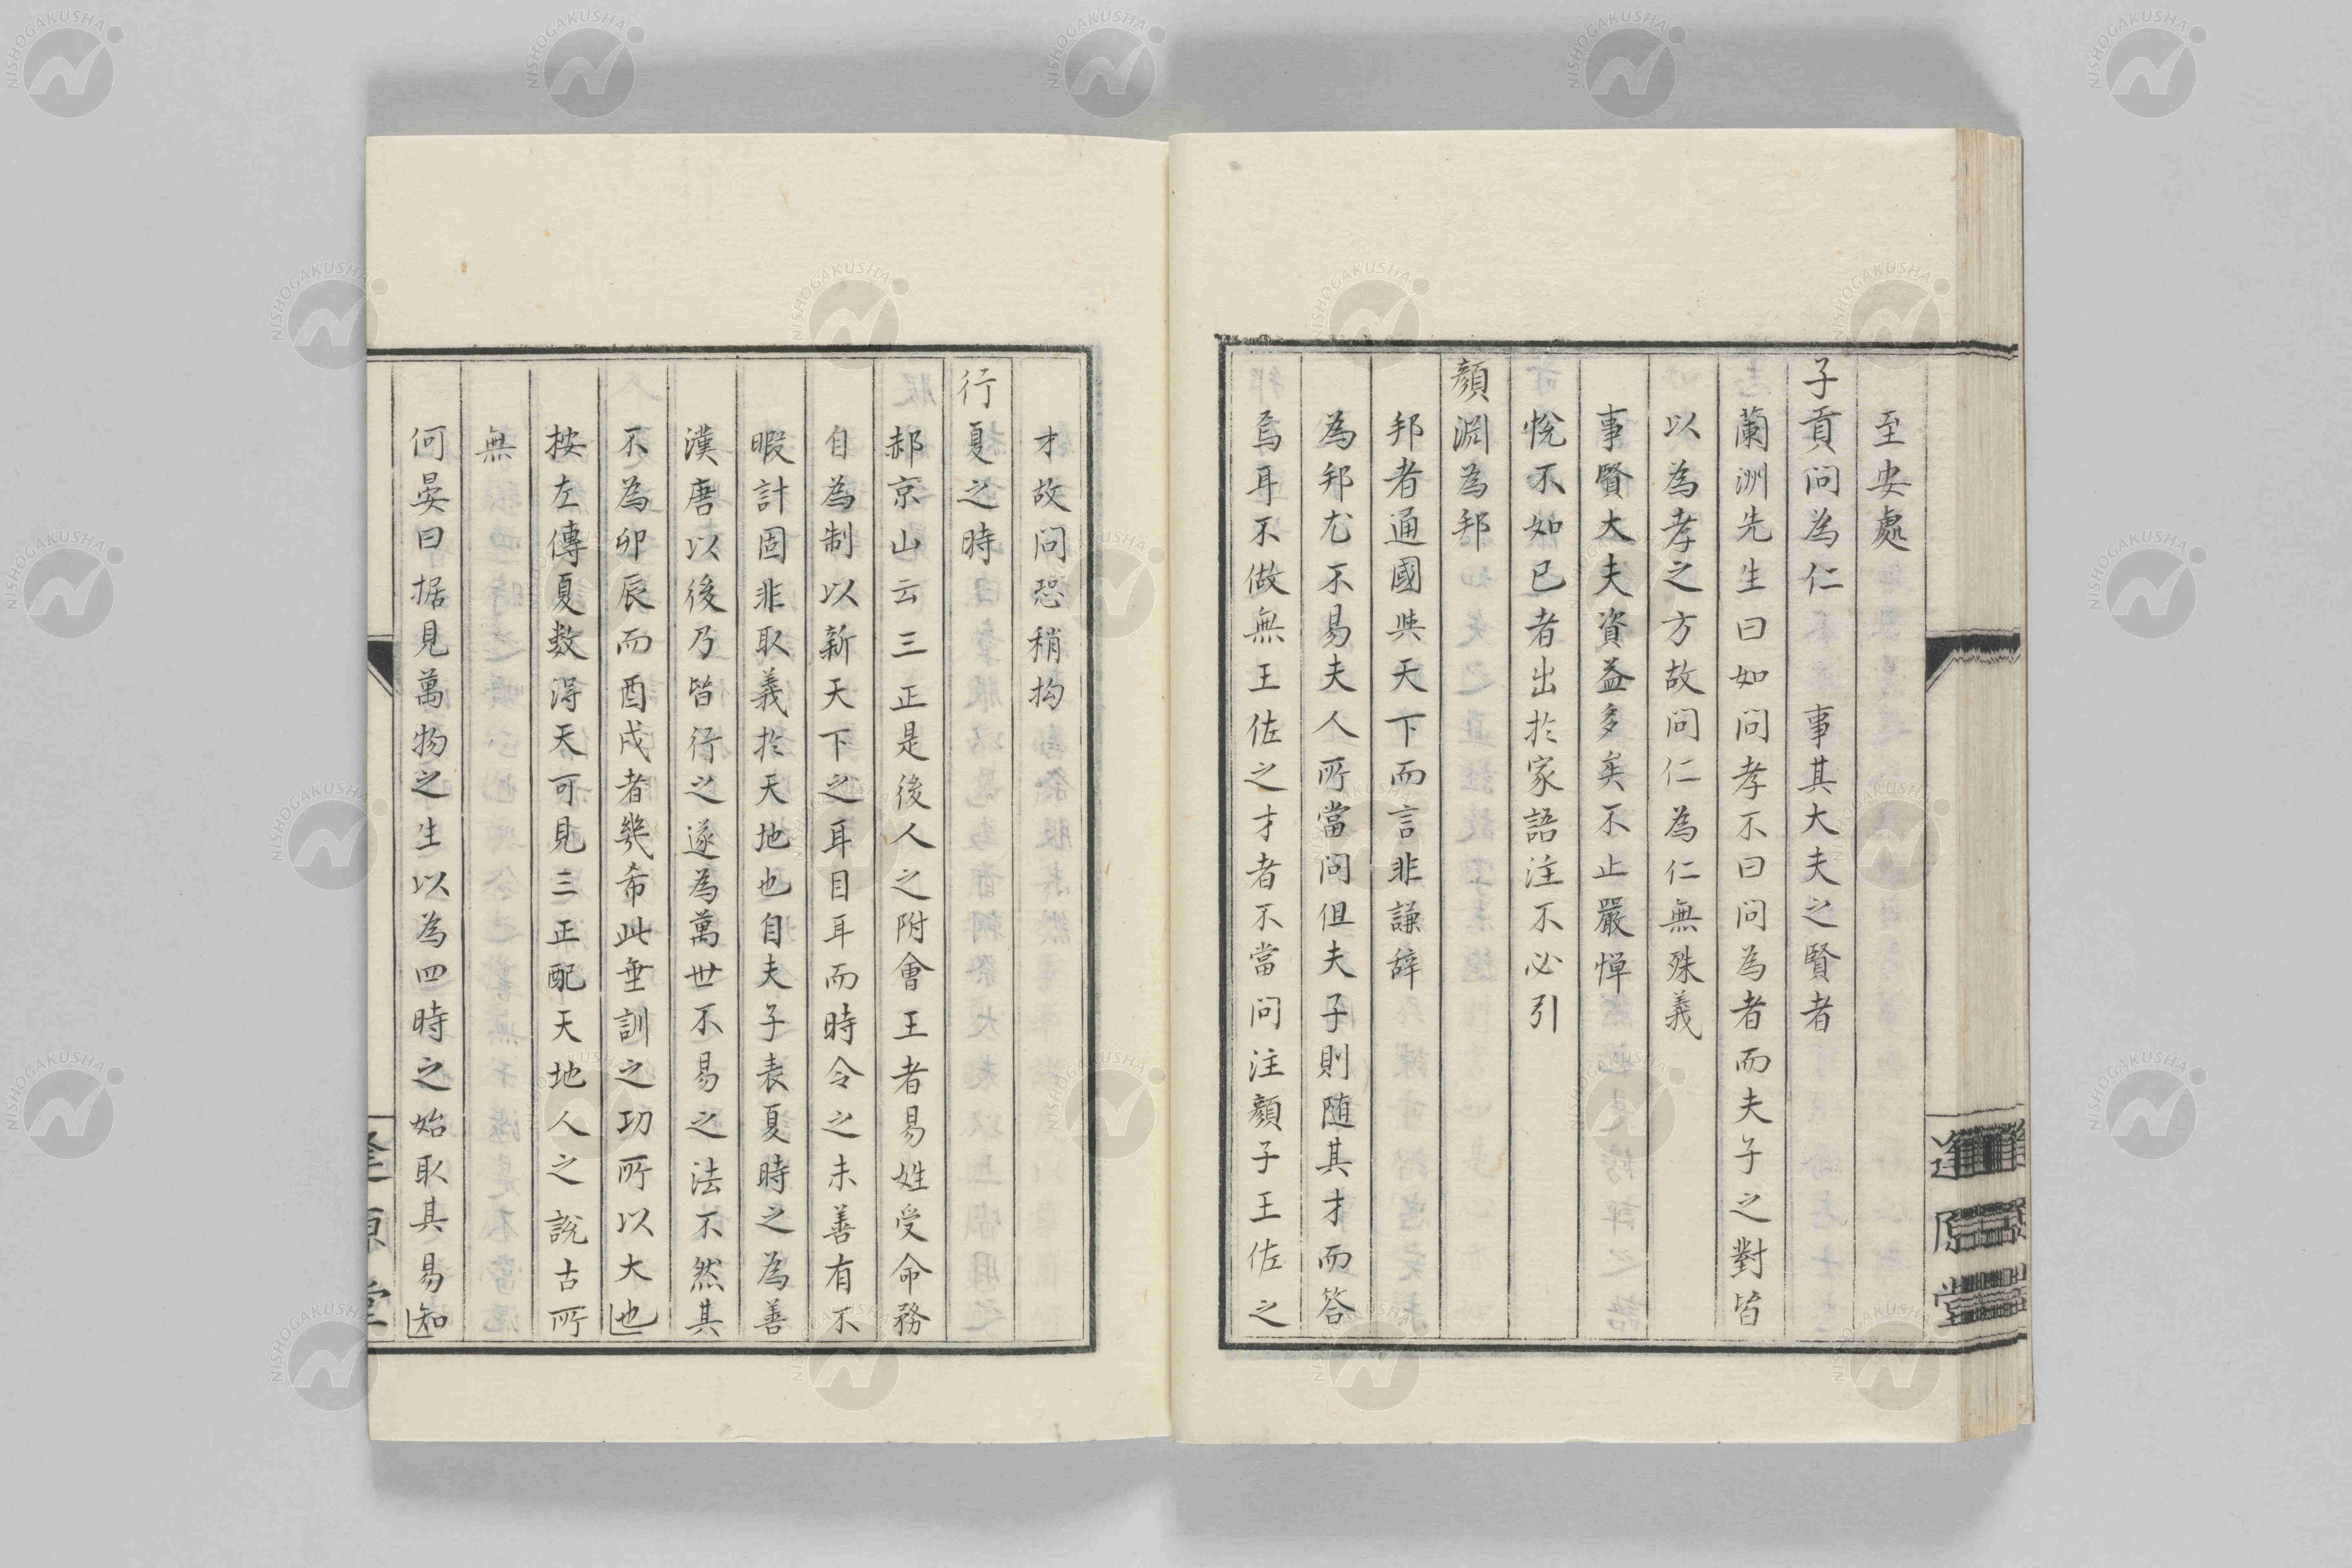 至安處
子貢問為仁　事其大夫之賢者
蘭洲先生曰如問孝不曰問為者而夫子之對皆
以為孝之方故問仁為仁無殊義
事賢大夫資益多矣不止嚴憚
悅不如已者出於家語注不必引
顏淵為邦
邦者通國與天下而言非謙辞
為邦尤不易夫人所當問但夫子則随其才而答
焉耳不做無王佐之才者不當問注顏子王佐之
才故問恐稍拘
行夏之時
郝京山云三正是後人之附會王者易姓受命務
自為制以新天下之耳目耳而時令之未善有不
暇計固非取義於天地也自夫子表夏時之為善
漢唐以後乃皆行之遂為萬世不易之法不然其
不為卯辰而酉戌者幾希此垂訓之功所以大也
按左傳夏数得天可見三正配天地人之說古所
無
何晏曰据見萬物之生以為四時之始取其易知
逢原堂
NISHOGAKUSHA